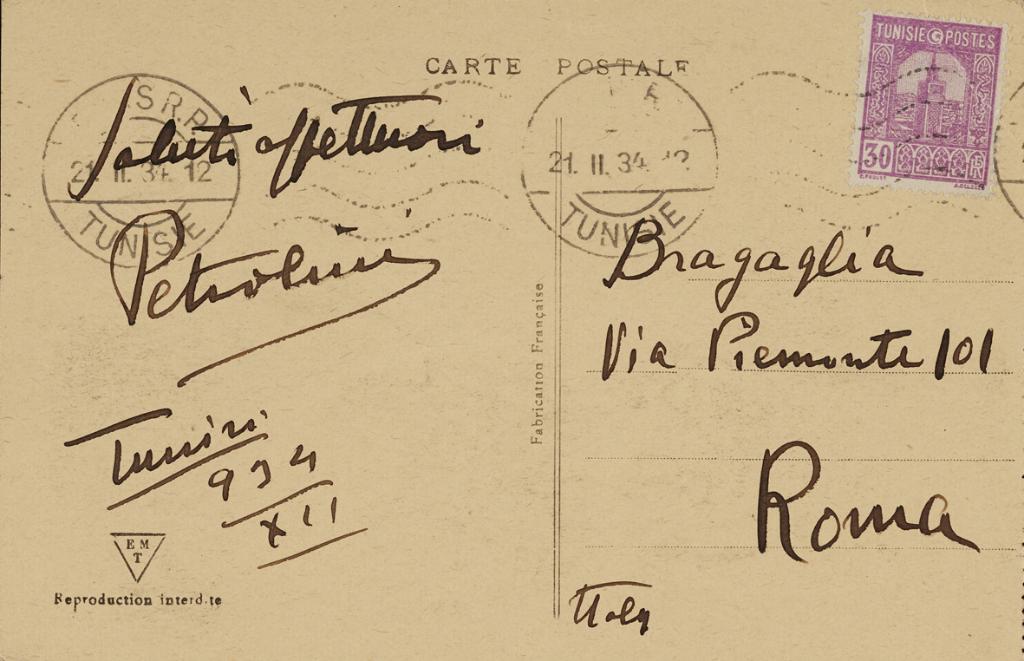 CARTE POSTALE
TUNISIE POSTES
30
21. II. 34 12
TUNISIE
21. II. 34 12
TUNISIE
Saluti affettuosi
Petrolini
Tunisi
934
XII
EMT
Reproduction interdite
Fabrication Française
Bragaglia
Via Piemonte 101
Roma
Italy